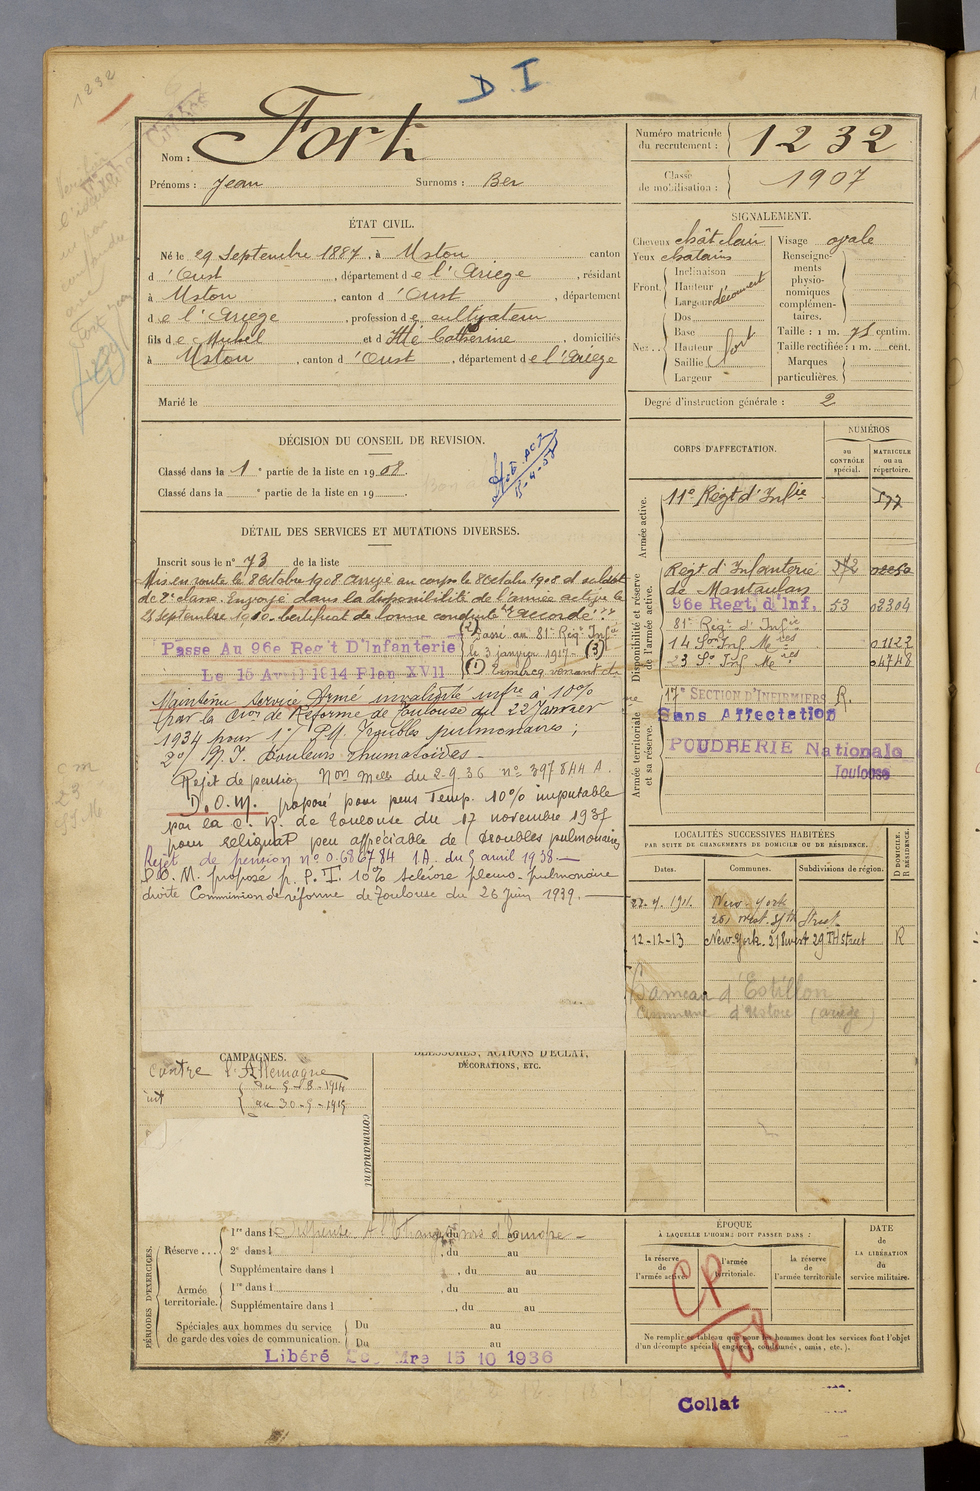 1232
D.I
Nom : Fort
Prénoms : Jean Surnoms : Ber
Numéro matricule du recrutement : 1232
Classe de mobilisation : 1907
ÉTAT CIVIL.
Né le 29 Septembre 1887, à Ustou canton
d'Oust, département de l'Ariège, résidant
à Ustou, canton d'Oust, département
de l'Ariège, profession de cultivateur
fils de Michel et d Catherine, domiciliés
à Ustou, canton d'Oust, département de l'Ariège
Marié le
SIGNALEMENT.
Cheveux châtclair Visage ovale
Yeux chatains
Front Inclinaison
Hauteur
Largeur découvert
Nez.. Dos
Base
Hauteur fort
Saillie
Largeur
Renseignements physionomiques complémentaires.
Taille : 1 m. 71 centim.
Taille rectifiée : 1 m. cent.
Marques particulières.
Degré d'instruction générale : 2
DÉCISION DU CONSEIL DE REVISION.
Classé dans la 1e partie de la liste en 1908.
Classé dans la e partie de la liste en 19
DÉTAIL DES SERVICES ET MUTATIONS DIVERSES.
Inscrit sous le n° 73 de la liste
Mis en route le 8 Octobre 1908 Arrivé au corps le 8 Octobre 1908 et soldat
de 2e classe. Envoyé dans la disponibilité de l'armée active le
Septembre 1910. Certificat de bonne conduite "Accordé".
(2) Passé au 81e Régt Infie
Passé Au 96e Reg't D'Infanterie
le 3 janvier 1917 - (3)
Le 15 Avril 1914 Plan XVII
(1)
Maintenu Service Armé invalidité infre à 10%
(par la Cion de Réforme de Toulouse du 22 Janvier
1934 pour 1°/ Troubles pulmonaires ;
2°/ Douleurs rhumatoïdes -
Rejet de pension Non Melle du 2.9.36 n° 397844 A.
D.O.M. proposé pour pens Temp. 10% imputable
par la C. R. de Toulouse du 17 novembre 1937
pour reliquat peu appréciable de troubles pulmonaires
Rejet de pension n° 0.686784 1A. du 5 avril 1938 -
D.O.M. propose p. P.I. 10% sclérose pleuro-pulmonaire
droite Commission de réforme de Toulouse du 26 Juin 1939. -
CORPS D'AFFECTATION.
NUMÉROS
au CONTRÔLE spécial.
MATRICULE ou au répertoire.
Armée active.
11e Régt d'Infie 577
Disponibilité et réserve de l'armée active.
Régt d'Infanterie
de Montauban
96e Regt, d'Inf, 53 02304
81e Régt d'Infie
14 Son Inf. Mres 01122
23 So Inf Mres 04748
Armée territoriale et sa réserve.
17e SECTION D'INFIRMIERS R.
Sans Affectation
POUDRERIE Nationale
Toulouse
LOCALITÉS SUCCESSIVES HABITÉES
PAR SUITE DE CHANGEMENTS DE DOMICILE OU DE RÉSIDENCE.
Dates. Communes. Subdivisions de région. D DOMICILE. R RÉSIDENCE.
New-York
251 West Street
12-12-13 New-York. 218 west 29TH street R
Hameau d'Estillon
Commune d'Ustou (ariège)
CAMPAGNES.
Contre l'Allemagne
du 5-8-1914
au 30-5-1919
commandant
BLESSURES, ACTIONS D'ÉCLAT, DÉCORATIONS, ETC.
PÉRIODES D'EXERCICES.
Réserve... 1re dans l Dispensé A l'Etranger hors d'Europe - , du au
2e dans l , du au
Supplémentaire dans l , du au
Armée territoriale. 1re dans l , du au
Supplémentaire dans l , du au
Spéciales aux hommes du service de garde des voies de communication. Du au
Du au
Libéré Mre 15 10 1936
ÉPOQUE
À LAQUELLE L'HOMME DOIT PASSER DANS :
la réserve de l'armée active
l'armée territoriale.
la réserve de l'armée territoriale
DATE de LA LIBÉRATION du service militaire.
CP
108
Ne remplir ce tableau que pour les hommes dont les services font l'objet
d'un décompte spécial (engagés, condamnés, omis, etc.).
Collat